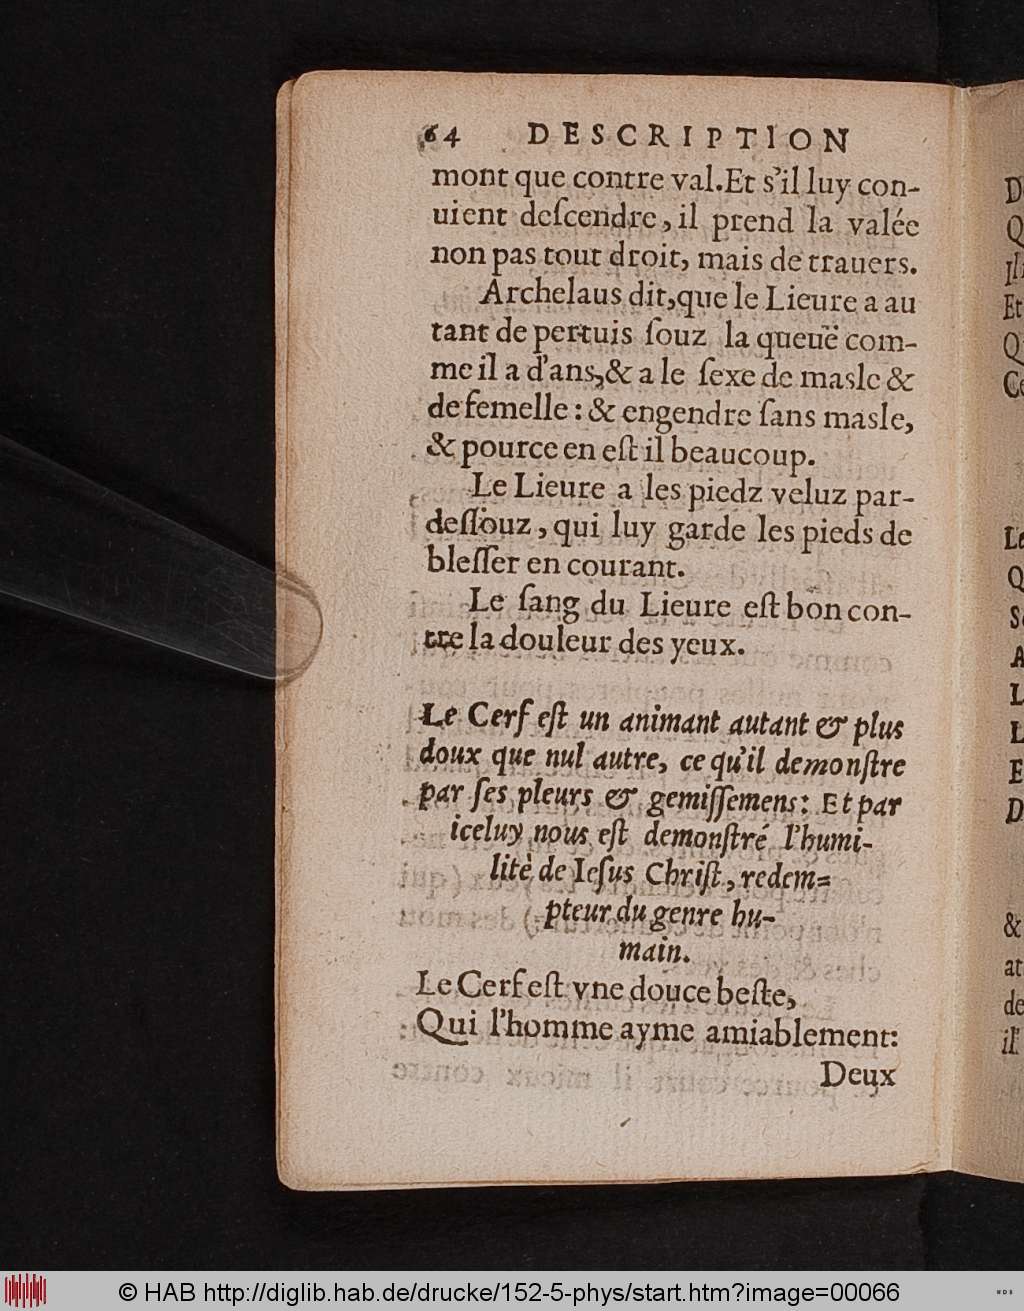 64 DESCRIPTION
mont que contre val. Et s'il luy con-
uient deſcendre, il prend la valée
non pas tout droit, mais de trauers.
Archelaus dit, que le Lieure a au
tant de pertuis ſouz la queuë com-
me il a d'ans, & a le ſexe de masle &
de femelle: & engendre ſans masle,
& pource en eſt il beaucoup.
Le Lieure a les piedz veluz par-
deſſouz, qui luy garde les pieds de
bleſſer en courant.
Le ſang du Lieure eſt bon con-
tre la douleur des yeux.
Le Cerf eſt un animant autant & plus
doux que nul autre, ce qu'il demonſtre
par ſes pleurs & gemiſſemens: Et par
iceluy nous eſt demonſtré l'humi-
litè de Ieſus Chriſt, redem=
pteur du genre hu-
main.
Le Cerf eſt vne douce beſte,
Qui l'homme ayme amiablement:
Deux
D
Q
Il
Et
Q
Co
Le
Q
S
A
L
L
E
D
&
at
de
il
© HAB http://diglib.hab.de/drucke/152-5-phys/start.htm?image=00066